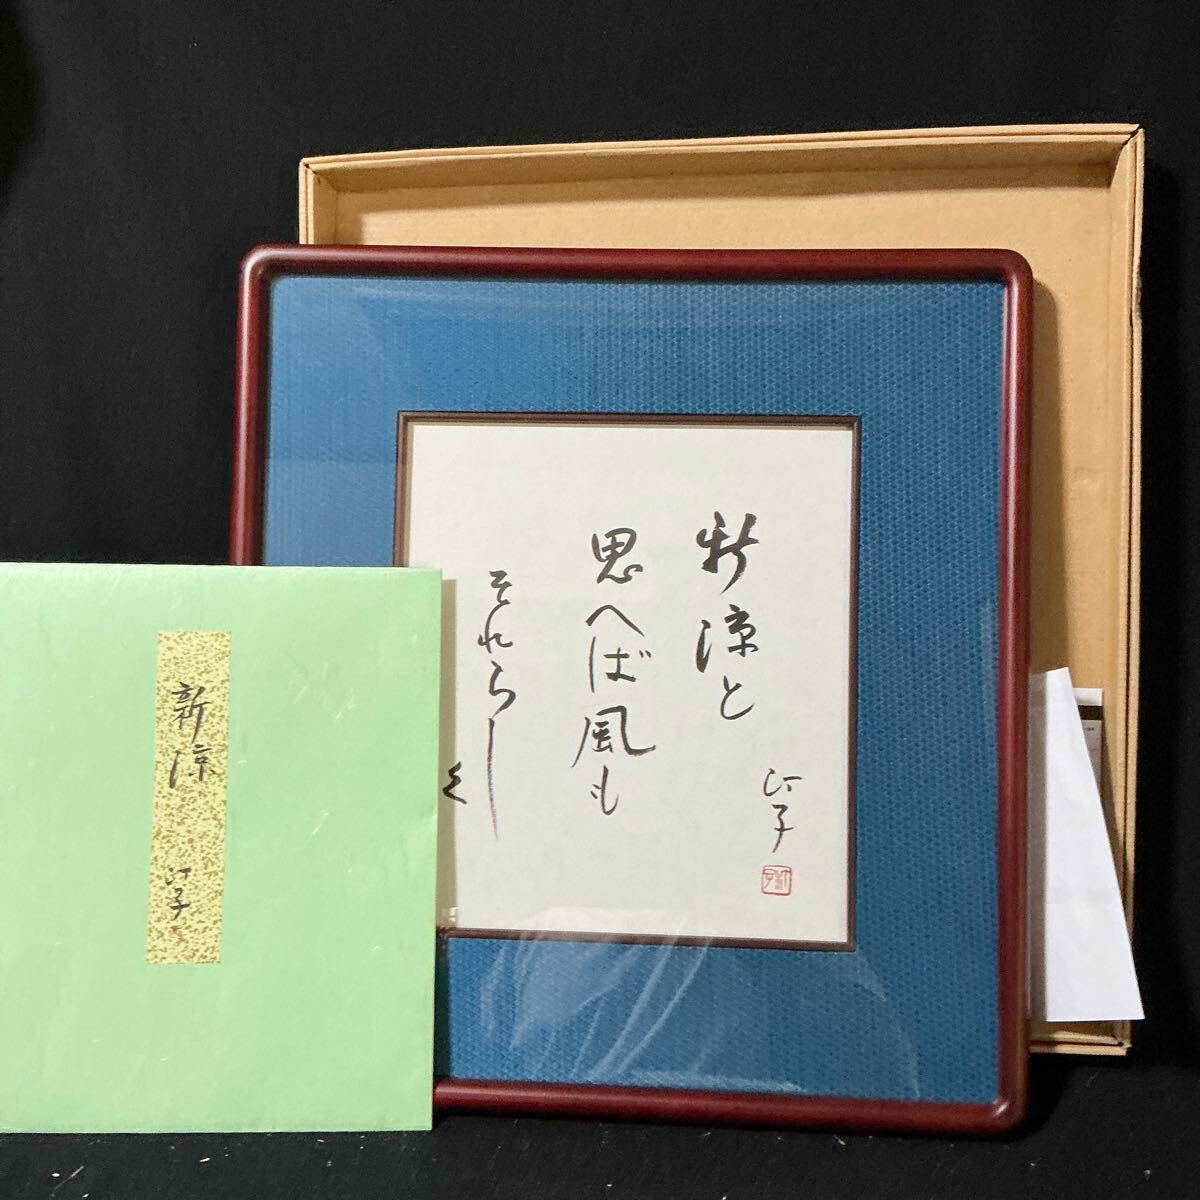 新涼と
思へば風も
それらし
く
汀子
新涼
汀子